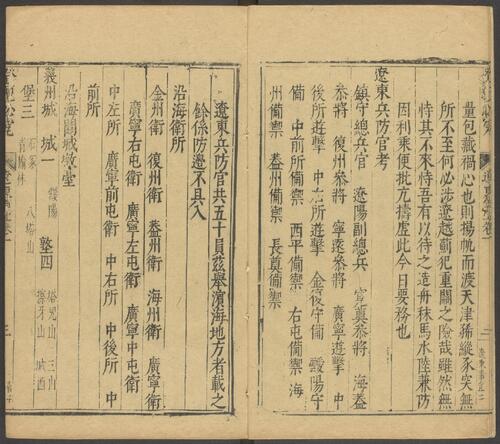 量包藏禍心也則揚帆而渡天津稀縱豕突無
所不至何必涉遼越薊犯重關之險哉雖然無
恃其不來恃吾有以待之造舟秣馬水陸兼防
因利乘便批亢擣虛此今日要務也
遼東兵防官考
鎮守總兵官 遼陽副總兵 寬奠叅將 海葢
叅將 復州叅將 寧遠叅將 廣寧遊擊 中
後所遊擊 中右所遊擊 金復守備 靉陽守
備 中前所備禦 西平備禦 右屯備禦 海
州備禦 葢州備禦 長奠備禦
遼東兵防官共五十員茲舉濵海地方者載之
餘係防邊不具入
沿海衛所
金州衛 復州衛 葢州衛 海州衛 廣寧衛
廣寧右屯衛 廣寧左屯衛 廣寧中屯衛
中左所 廣寧前屯衛 中右所 中後所 中
前所
沿海關城墩臺
義州城 城一 靉陽 墪四 塔兒山 三山 擦牙山 城酉
堡三 石家 八塔山 青榆林